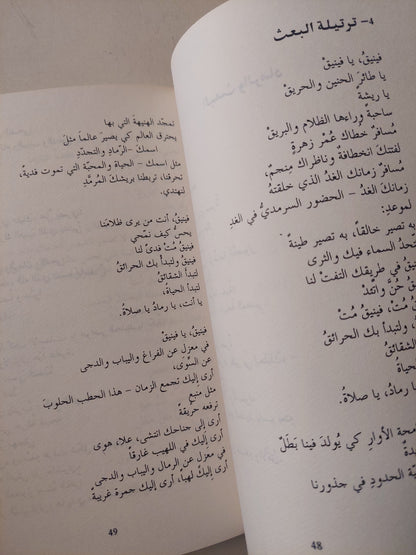 4- ترتيلة البعث
فينيقُ، يا فينيقْ
يا طائرَ الحنين والحريقْ
يا ريشةً
ساحبةً وراءها الظلام والبريقْ
مُسافرٌ خُطاك عُمْر زهرةٍ
لفتتكَ انخطافةٌ وناظراك منجمٌ،
مُسافرٌ زمانك الغدُ الذي خلقتهُ
زمانكَ الغدُ - الحضور السرمديُّ في الغدِ
لموعدِ:
به تصير خالقاً، به تصير طينةً
تتحدُ السماء فيك والثرى
في طريقك التفتْ لنا
حُنَّ واتّئدْ
مُتْ، فينيقُ مُتْ
ولتبدأ بك الحرائقُ
الشقائقُ
الحياةُ
يا رمادُ، يا صلاةُ.
الأوار كي يُولدَ فينا بَطَلٌ
الحدودِ في جذورنا
48
تمجّد الهنيهةَ التي بها
يحترق العالم كي يصيرَ عالماً مثلَ
اسمكَ - الرّمادِ والتجدّدِ
مثل اسمك - الحياة والمحبّة التي تموت فديةً،
تحرقنا، تربطنا بريشكَ المُرمَّدِ
لنهتدي.
فينيقُ، أنت من يرى ظلامَنا
يحسُّ كيف نمّحي
فينيقُ مُتْ فدىً لنا
فينيقُ ولتبدأ بك الحرائقُ
لتبدأ الشقائقُ
لتبدأ الحياةُ،
يا أنت، يا رمادُ يا صلاةُ.
فينيقُ، يا فينيقُ
في معزل عن الفراغ واليباب والدجى
عن السِّوَى،
أرى إليك تجمع الزمان - هذا الحطب الحلوبَ
مثل منبعٍ
ترفعه حريقةً
أرى إلى جناحك انتشى، علا، هوى
أرى إليك في اللهيب غارقاً
في معزل عن الرمال واليباب والدجى
أرى إليك لهباً، أرى إليك جمرة غريبةً
49